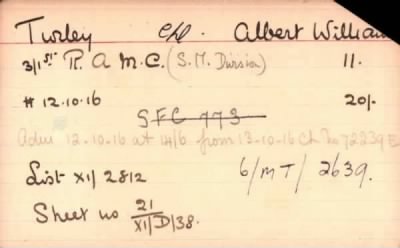 Turley Cpl Albert William
3/1st R. A. M. C. (S. M. Division) 11.
# 12.10.16 20/-
SFC 773
Adm 12-10-16 at 14/6 from 13-10-16 Ch No 72239
List XI/2812 6/MT/2639.
Sheet no 21/XI/D/38.